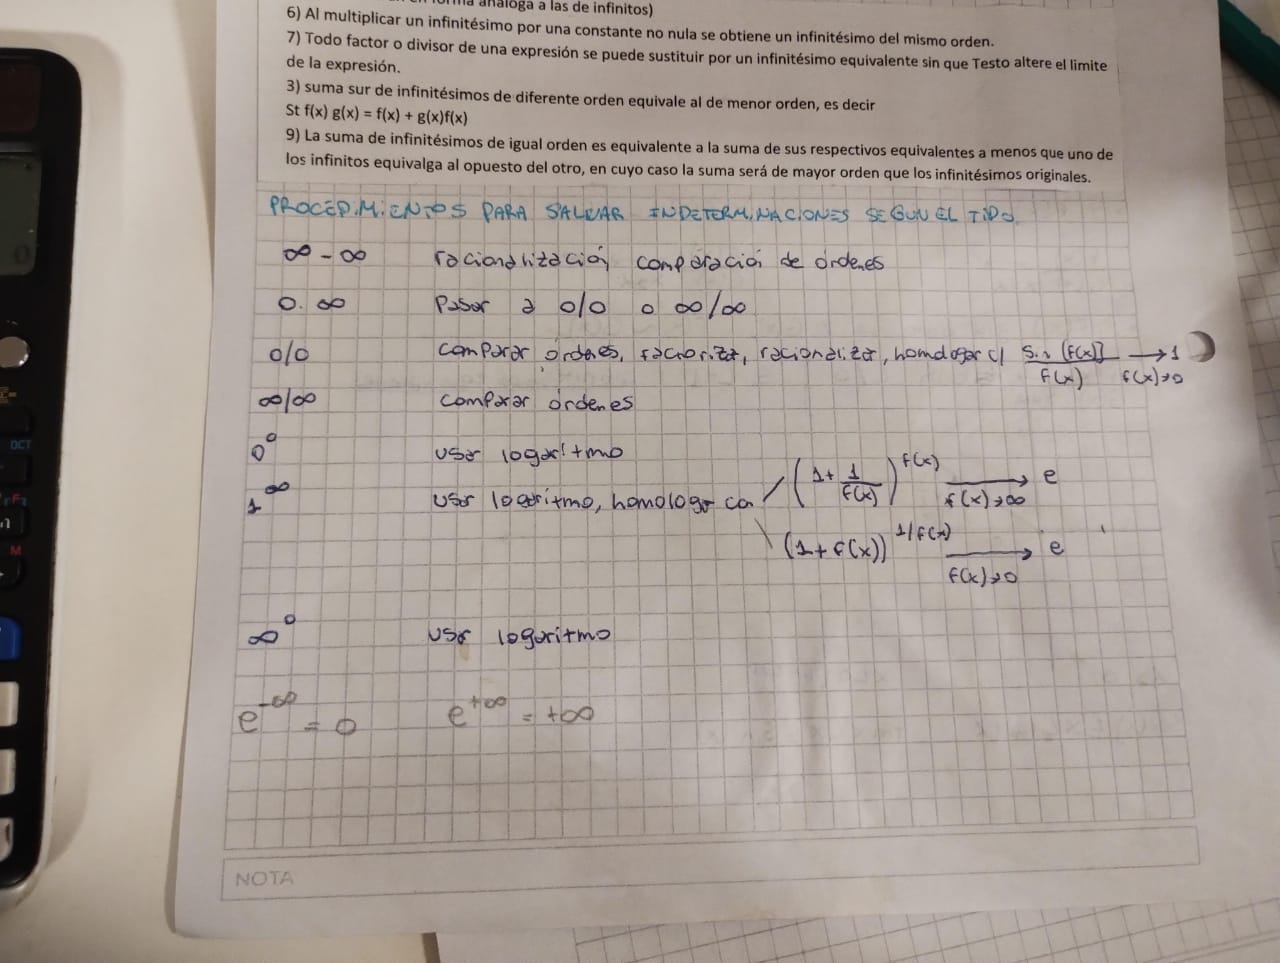 en forma análoga a las de infinitos)
6) Al multiplicar un infinitésimo por una constante no nula se obtiene un infinitésimo del mismo orden.
7) Todo factor o divisor de una expresión se puede sustituir por un infinitésimo equivalente sin que Testo altere el limite
de la expresión.
3) suma sur de infinitésimos de diferente orden equivale al de menor orden, es decir
St f(x) g(x) = f(x) + g(x)f(x)
9) La suma de infinitésimos de igual orden es equivalente a la suma de sus respectivos equivalentes a menos que uno de
los infinitos equivalga al opuesto del otro, en cuyo caso la suma será de mayor orden que los infinitésimos originales.
PROCEDIMIENTOS PARA SALVAR INDETERMINACIONES SEGUN EL TIPO
∞ - ∞ racionalización comparación de órdenes
0. ∞ Pasar a 0/0 o ∞/∞
0/0 comparar órdenes, factorizar, racionalizar, homologar c/ Sin [f(x)] / f(x) → 1 f(x)→0
∞/∞ comparar órdenes
0^0 usar logaritmo
1^∞ usar logaritmo, homologar con (1 + 1/f(x))^f(x) → e f(x)→∞
(1 + f(x))^1/f(x) → e f(x)→0
∞^0 usar logaritmo
e^-∞ = 0 e^+∞ = +∞
NOTA
OCT
M